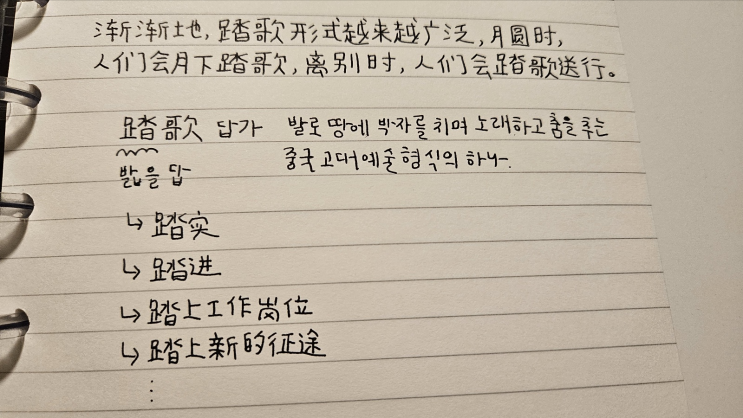 渐渐地，踏歌形式越来越广泛，月圆时，
人们会月下踏歌，离别时，人们会踏歌送行。
踏歌 답가 발로 땅에 박자를 치며 노래하고 춤을 추는
밟을 답 중국 고대 예술 형식의 하나.
↳ 踏实
↳ 踏进
↳ 踏上工作岗位
↳ 踏上新的征途
⋮